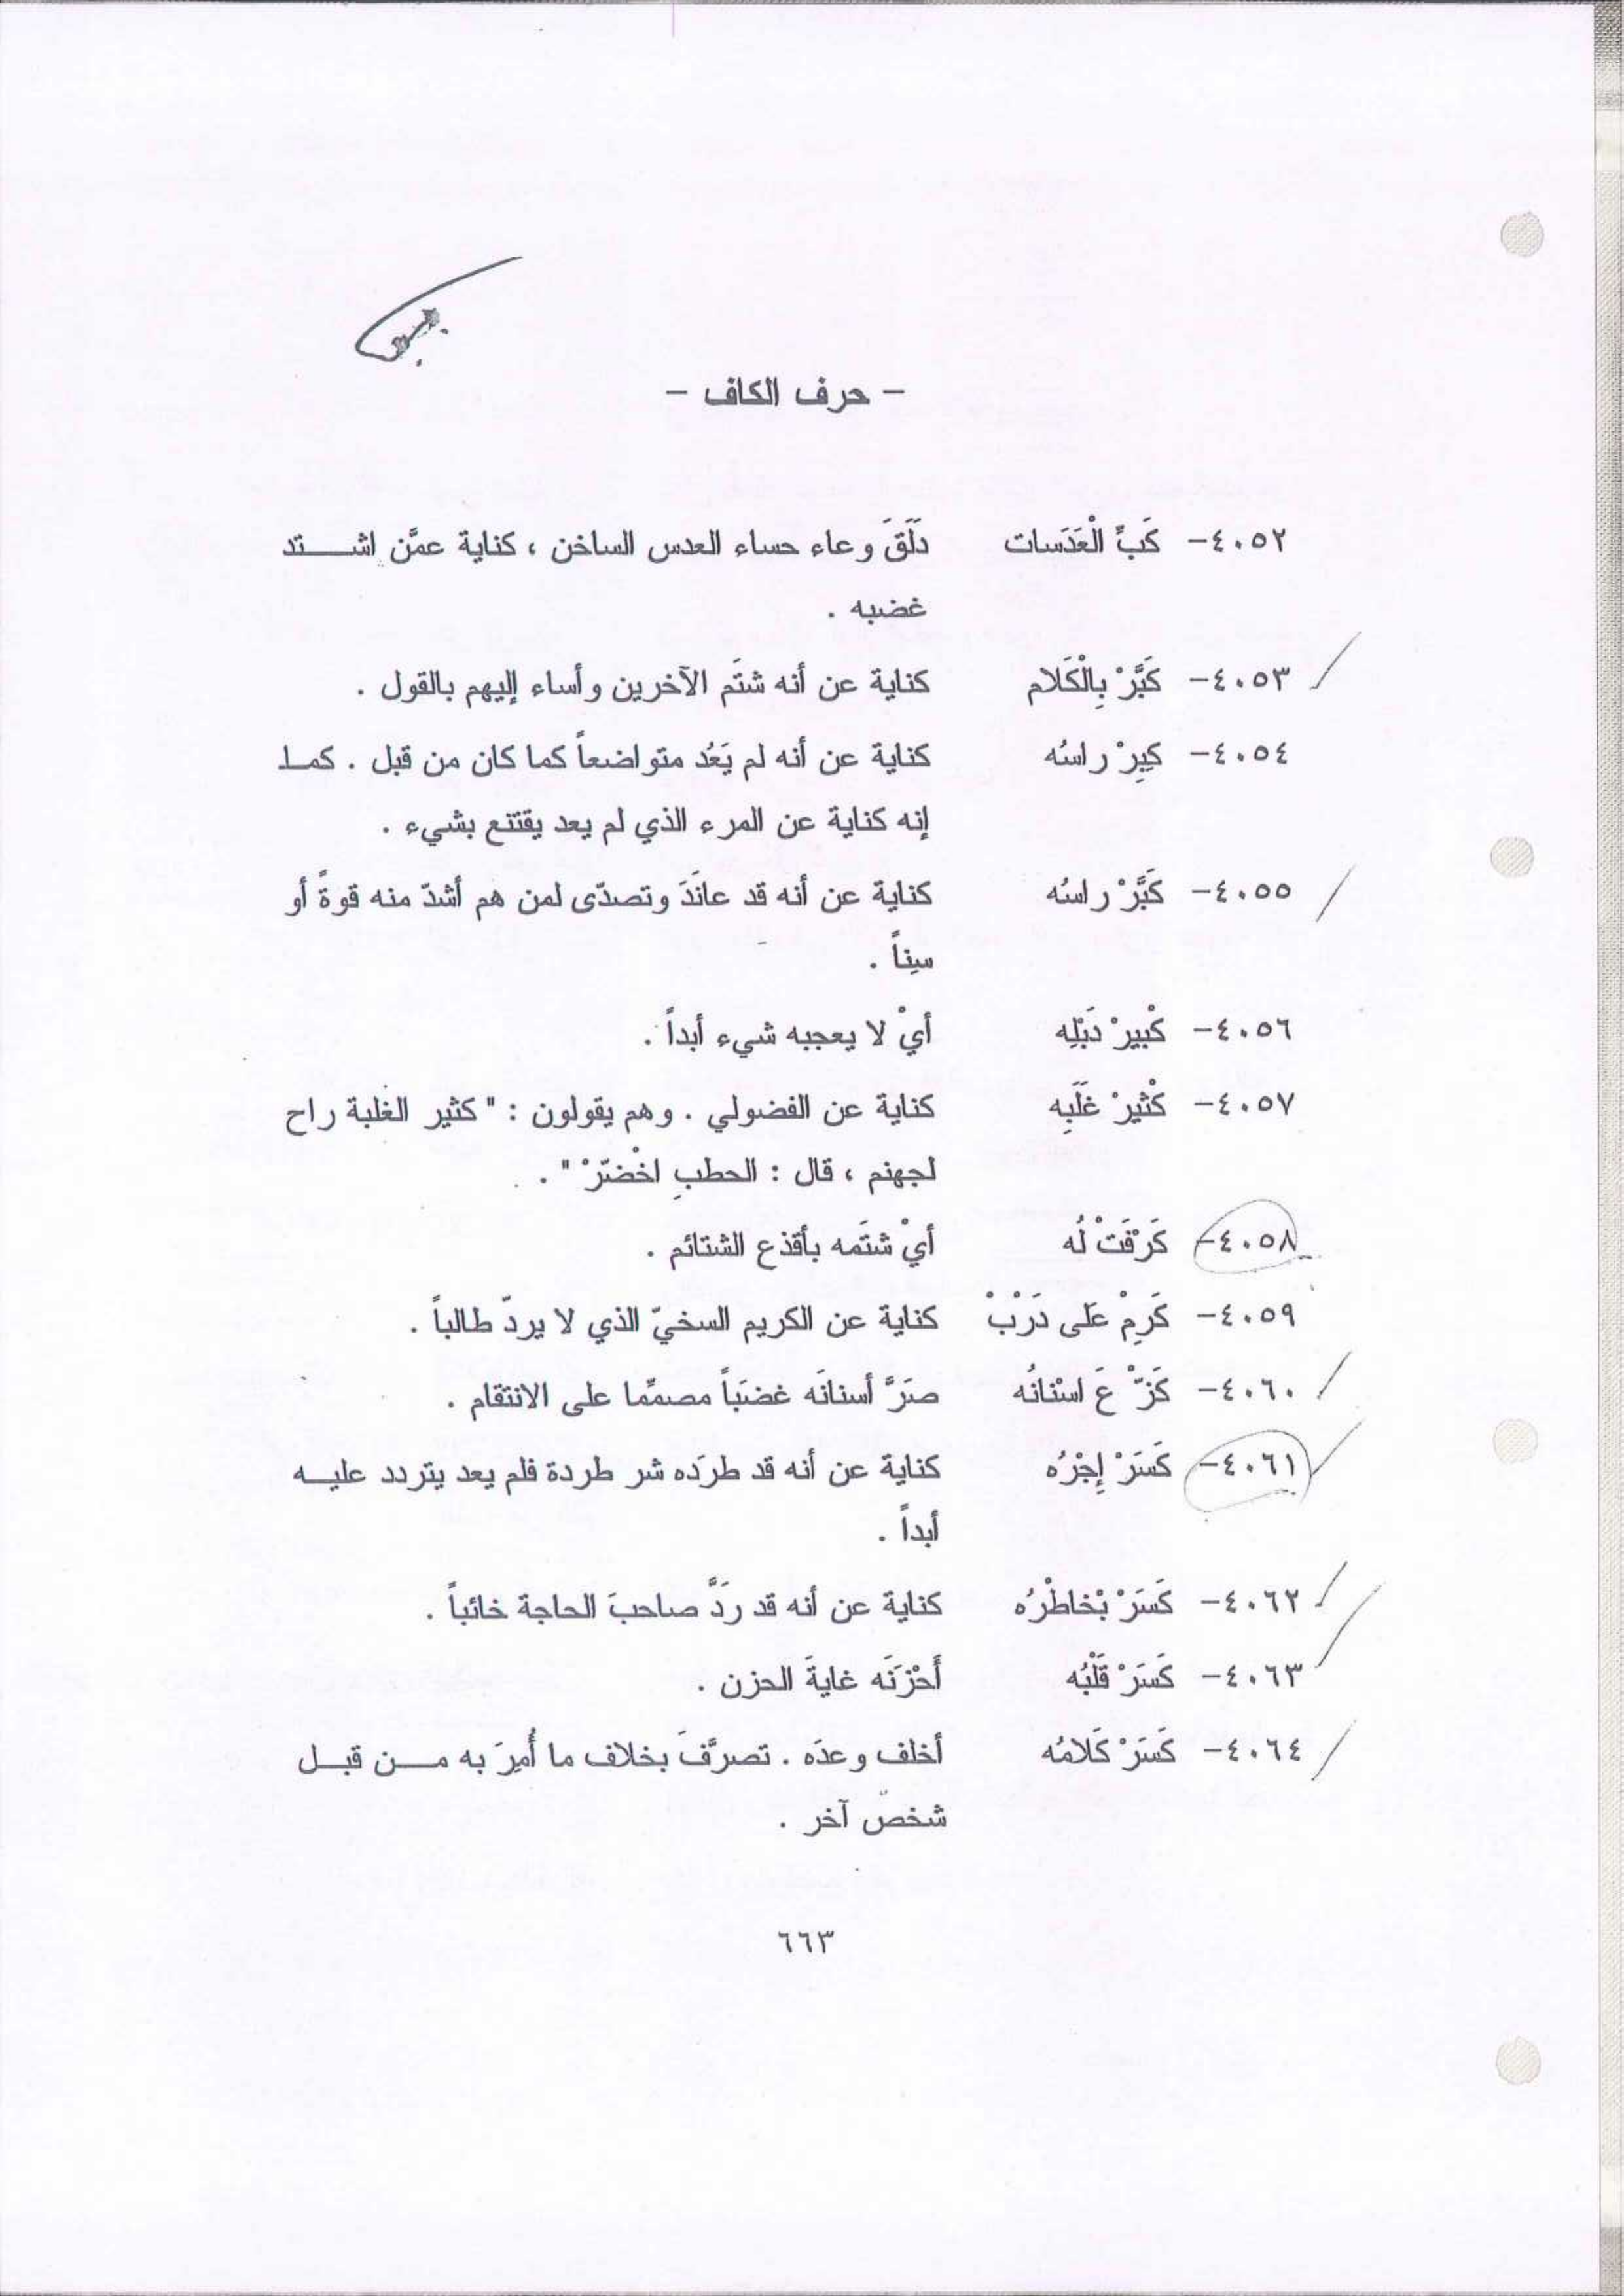 - حرف الكاف -
٤٠٥٢- كَبِّ الْعَدَسات دَلَقَ وعاء حساء العدس الساخن ، كناية عمَّن اشــتد
غضبه .
٤٠٥٣- كَبَّرْ بِالْكَلام كناية عن أنه شتَم الآخرين وأساء إليهم بالقول .
٤٠٥٤- كِبِرْ راسُه كناية عن أنه لم يَعُد متواضعاً كما كان من قبل . كمـا
إنه كناية عن المرء الذي لم يعد يقتنع بشيء .
٤٠٥٥- كَبَّرْ راسُه كناية عن أنه قد عانَدَ وتصدّى لمن هم أشدّ منه قوةً أو
سِناً .
٤٠٥٦- كْبيرْ دَبْلِه أيْ لا يعجبه شيء أبداً .
٤٠٥٧- كْثيرْ غَلَبِه كناية عن الفضولي . وهم يقولون : " كثير الغلبة راح
لجهنم ، قال : الحطبِ اخْضَرّْ " .
٤٠٥٨- كَرْفَتْ لُه أيْ شتَمه بأقذع الشتائم .
٤٠٥٩- كَرِمْ عَلى دَرْبْ كناية عن الكريم السخيّ الذي لا يردّ طالباً .
٤٠٦٠- كَزّْ عَ اسْنانُه صَرَّ أسنانَه غضَباً مصمِّما على الانتقام .
٤٠٦١- كَسَرْ إِجْرُه كناية عن أنه قد طرَده شر طردة فلم يعد يتردد عليــه
أبداً .
٤٠٦٢- كَسَرْ بْخاطْرُه كناية عن أنه قد رَدَّ صاحبَ الحاجة خائباً .
٤٠٦٣- كَسَرْ قَلْبُه أَحْزَنَه غايةَ الحزن .
٤٠٦٤- كَسَرْ كَلامُه أخلف وعدَه . تصرَّفَ بخلاف ما أُمِرَ به مــن قبــل
شخص آخر .
٦٦٣